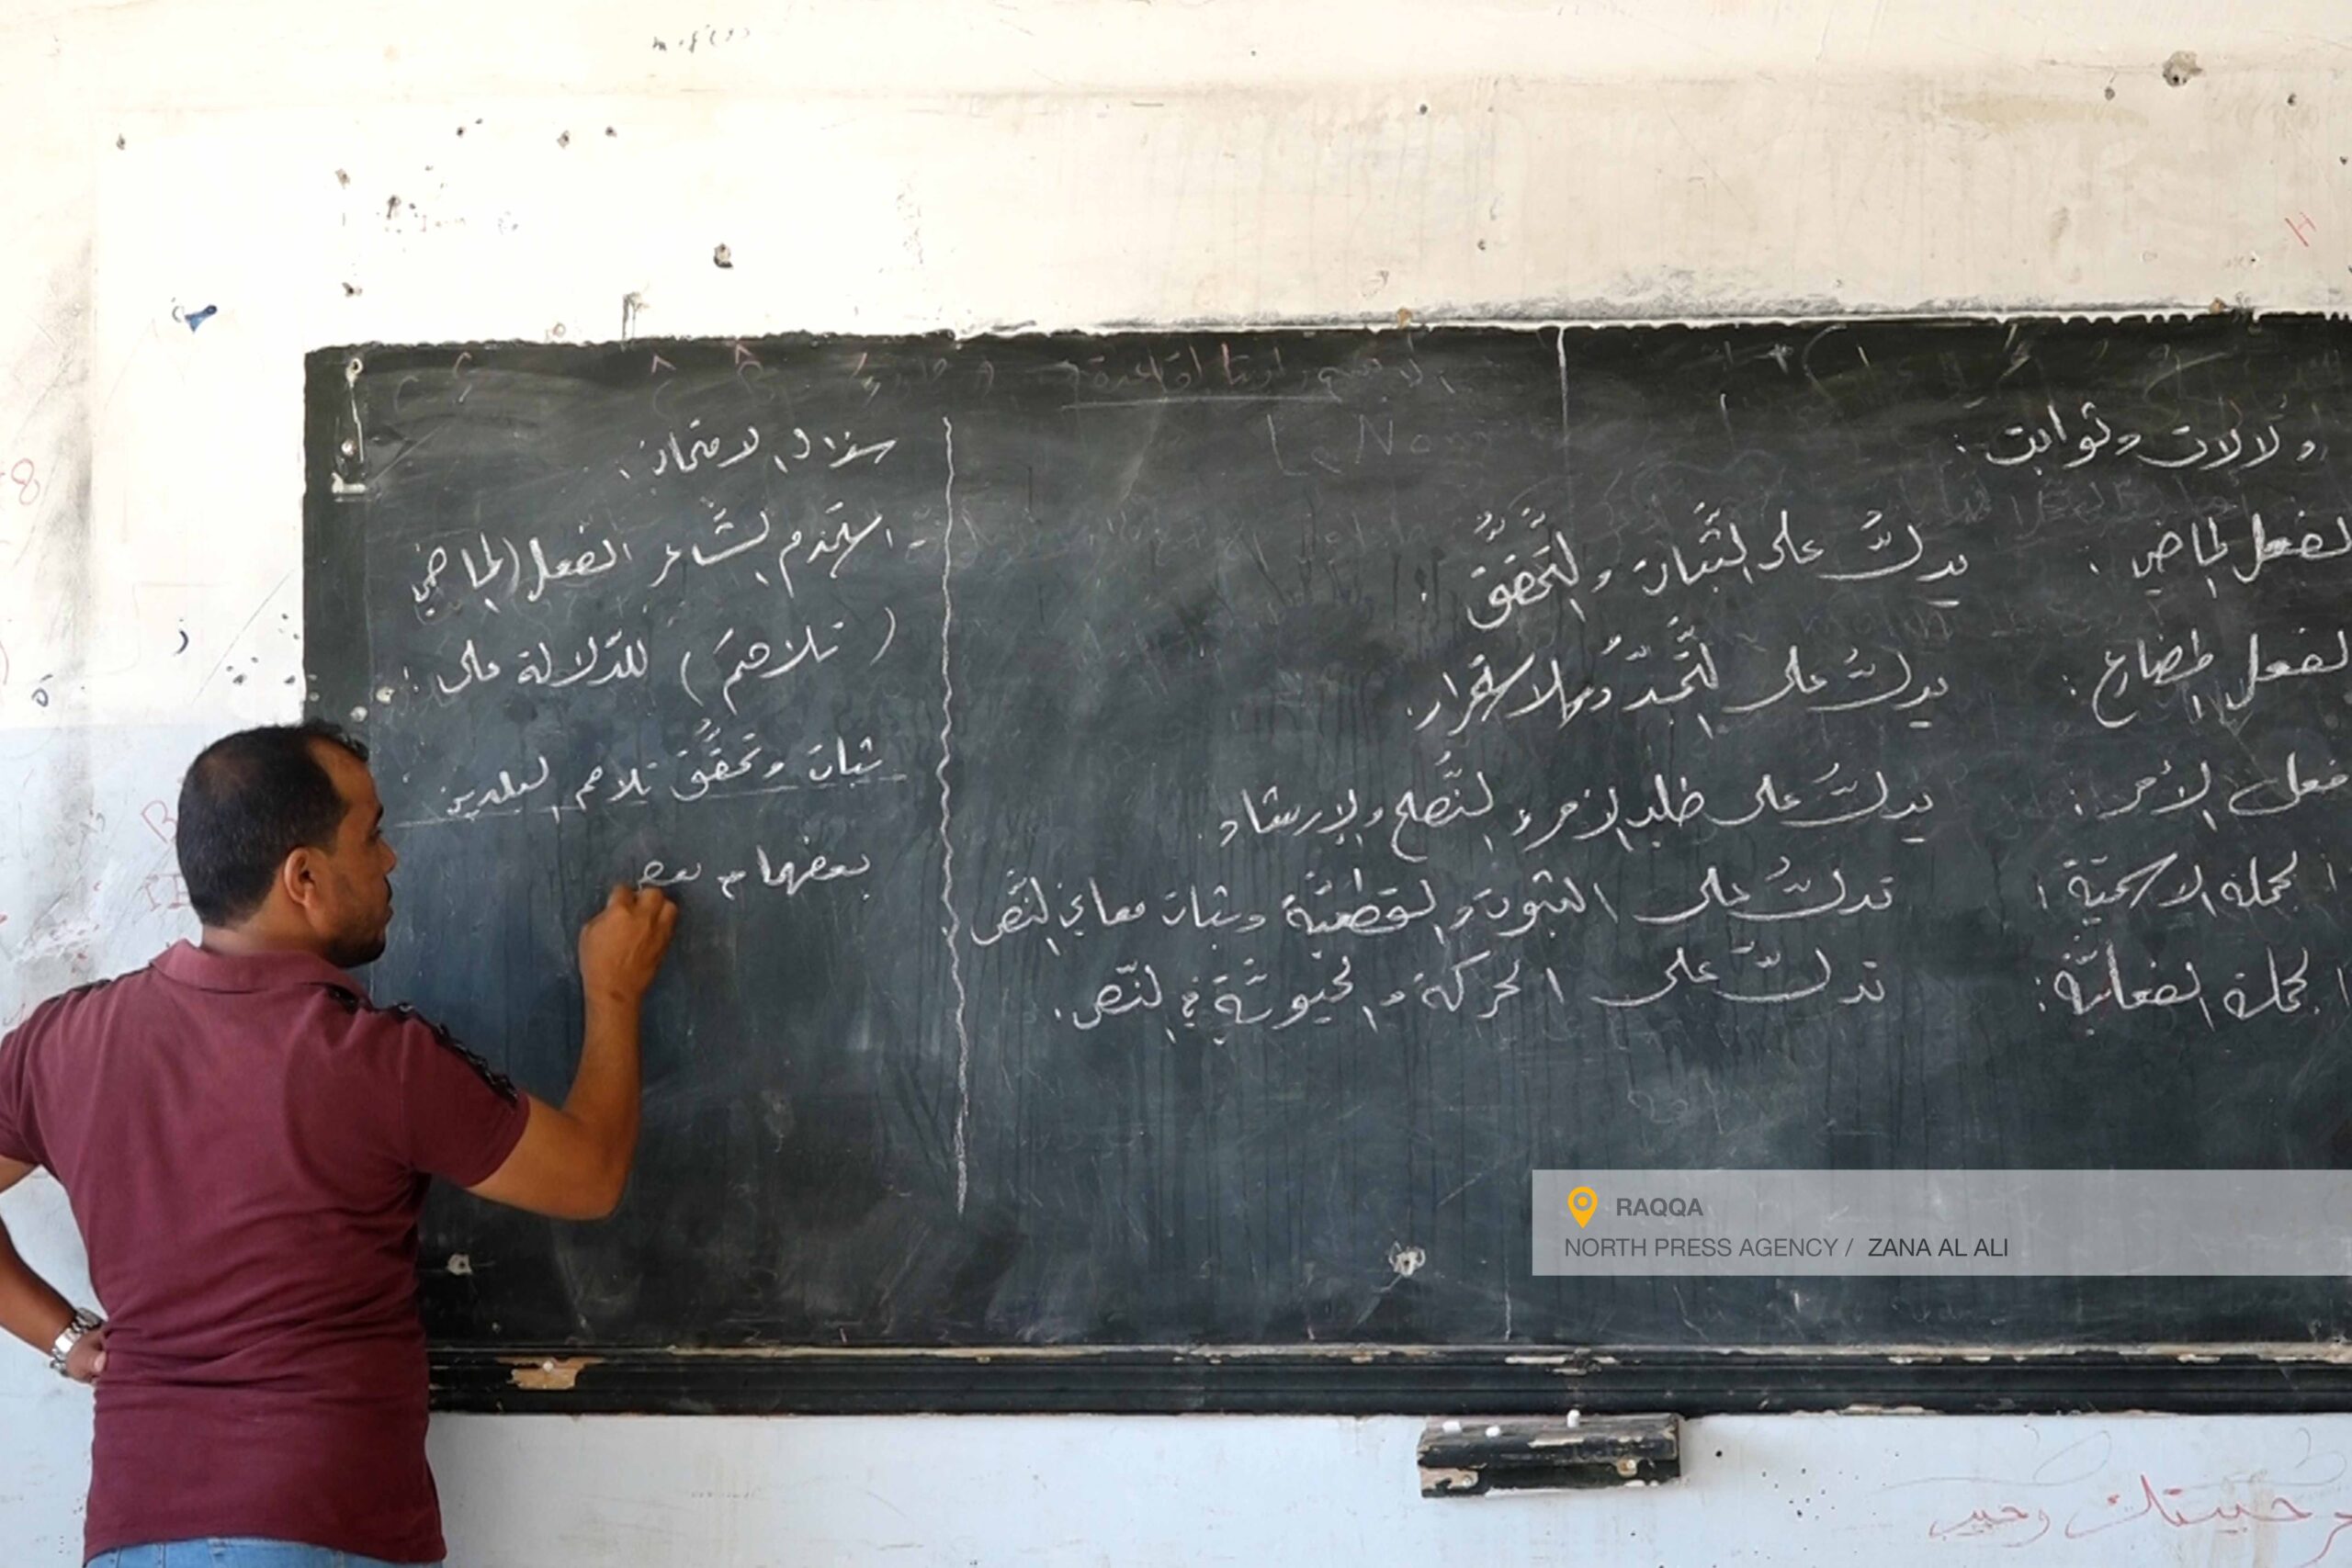 دلالات وثوابت:
الفعل الماضي: يدلُّ على الثَّبات والتَّحقُّق.
الفعل المضارع: يدلُّ على التَّجدُّد والاستقرار.
فعل الأمر: يدلُّ على طلب الأمر والنُّصح والإرشاد.
الجملة الاسميّة: تدلُّ على الثبوت والقطعيَّة وثبات معاني النَّص.
الجملة الفعليَّة: تدلُّ على الحركة والحيويَّة في النَّص.
سؤال الامتحان:
- استخدم الشَّاعر الفعل الماضي
(تلاحمَ) للدّلالة على:
ثبات وتحقُّق تلاحم البلدين
بعضهما مع بعض
Le Nom
RAQQA
NORTH PRESS AGENCY / ZANA AL ALI